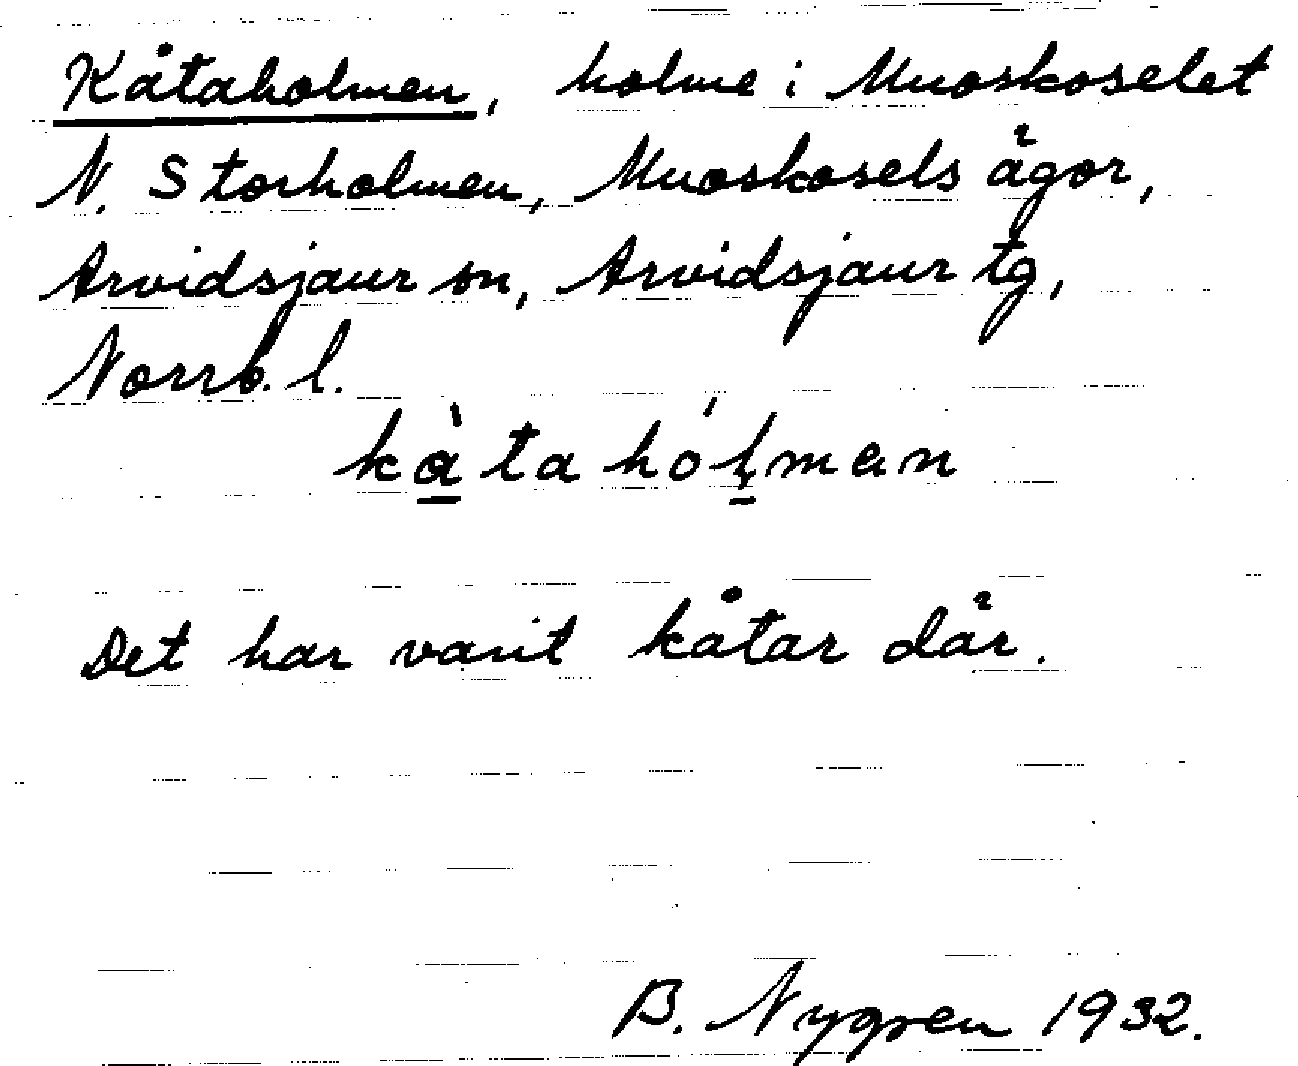 Kåtaholmen, holme i Muoskoselet
N. Storholmen, Muoskosels ägor,
Arvidsjaur sn, Arvidsjaur tg,
Norrb. l.
kàta hól̥man
Det har varit kåtar där.
B. Nygren 1932.